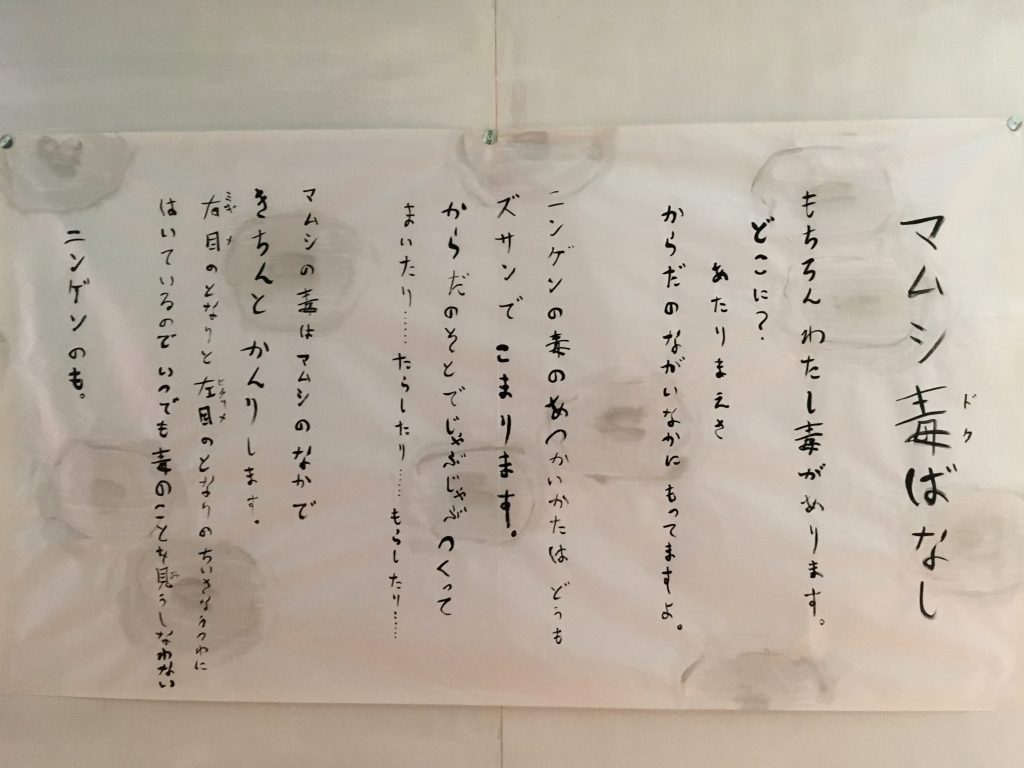 マムシ毒ばなし
ドク
もちろん わたし毒があります。
どこに?
あたりまえさ
からだのながいなかに もってますよ。
ニンゲンの毒のあつかいかたは どうも
ズサンで こまります。
からだのそとでじゃぶじゃぶ つくって
まいたり……たらしたり……もらしたり……
マムシの毒は マムシのなかで
きちんと かんりします。
右目のとなりと左目のとなりのちいさなうつわに
ミギ メ ヒダリ メ
はいているので いつでも毒のことを見うしなわない
ミ
ニンゲンのも。